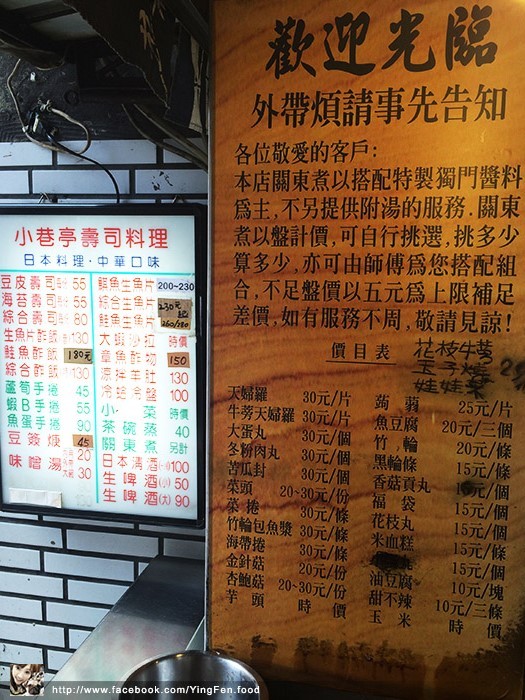 歡迎光臨
外帶煩請事先告知
各位敬愛的客戶:
本店關東煮以搭配特製獨門醬料
爲主,不另提供附湯的服務.關東
煮以盤計價,可自行挑選,挑多少
算多少,亦可由師傅爲您搭配組
合,不足盤價以五元爲上限補足
差價,如有服務不周,敬請見諒!
價目表
花枝牛蒡
玉子燒
娃娃菜
天婦羅 30元/片
牛蒡天婦羅 30元/條
大蛋丸 30元/個
冬粉肉丸 30元/個
苦瓜封 30元/個
菜頭 20~30元/份
菜捲 30元/條
竹輪包魚漿 30元/條
海帶捲 30元/條
金針菇 20元/份
杏鮑菇 20~30元/份
芋頭 時價
蒟蒻 25元/片
魚豆腐 20元/三個
竹輪 20元/條
黑輪條 15元/條
香菇貢丸
福袋 15元/個
花枝丸 15元/個
米血糕 15元/條
油豆腐 10元/塊
甜不辣 10元/三條
玉米 時價
小巷亭壽司料理
日本料理·中華口味
豆皮壽司 55
海苔壽司 55
綜合壽司 80
生魚片酢飯 130
鮭魚酢飯 180元
綜合酢飯 130
蘆筍手捲 45
蝦B手捲 55
魚蛋手捲 90
豆簽焿 45
味噌湯 20
30
鮪魚生魚片 200~230
鮭魚生魚片 230元起
綜合生魚片 260/280
大蝦沙拉 時價
章魚酢物 150
涼拌羊肚 130
冷蛙冷盤 100
小菜 時價
茶碗蒸 40
關東煮 另計
日本清酒 100
生啤酒(小) 50
生啤酒(大) 90
http://www.facebook.com/YingFen.food